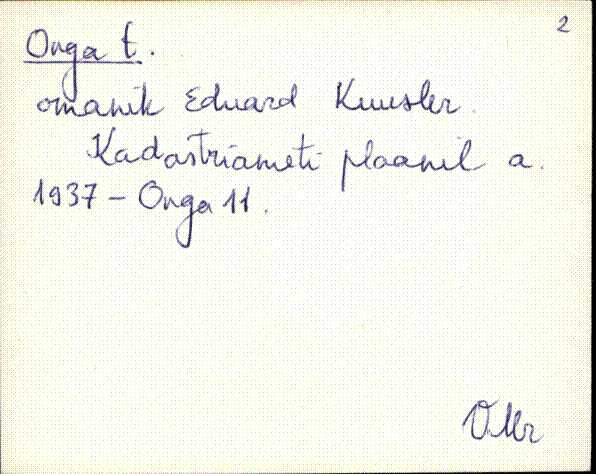 2
Onga t.
omanik Eduard Kuusler.
Kadastriameti plaanil a.
1937 – Onga 11.